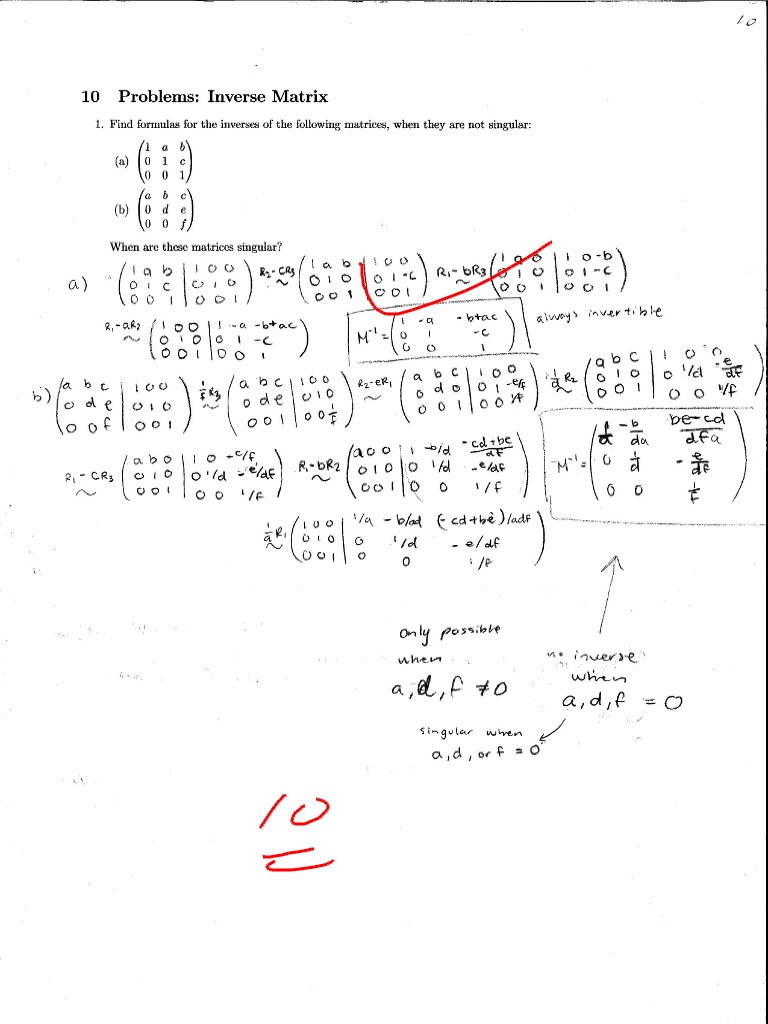 10
10 Problems: Inverse Matrix
1. Find formulas for the inverses of the following matrices, when they are not singular:
(a) (1 a b
0 1 c
0 0 1)
(b) (a b c
0 d e
0 0 f)
When are these matrices singular?
a) (1 a b | 1 0 0
0 1 c | 0 1 0
0 0 1 | 0 0 1)
R2-CR3 ~ (1 a b | 1 0 0
0 1 0 | 0 1 -c
0 0 1 | 0 0 1)
R1-bR3 ~ (1 a 0 | 1 0 -b
0 1 0 | 0 1 -c
0 0 1 | 0 0 1)
R1-aR2 ~ (1 0 0 | 1 -a -b+ac
0 1 0 | 0 1 -c
0 0 1 | 0 0 1)
M⁻¹ = (1 -a -b+ac
0 1 -c
0 0 1)
always invertible
b) (a b c | 1 0 0
0 d e | 0 1 0
0 0 f | 0 0 1)
1/f R3 ~ (a b c | 1 0 0
0 d e | 0 1 0
0 0 1 | 0 0 1/f)
R2-eR1 ~ (a b c | 1 0 0
0 d 0 | 0 1 -e/f
0 0 1 | 0 0 1/f)
1/d R2 ~ (a b c | 1 0 0
0 1 0 | 0 1/d -e/df
0 0 1 | 0 0 1/f)
R1-CR3 ~ (a b 0 | 1 0 -c/f
0 1 0 | 0 1/d -e/df
0 0 1 | 0 0 1/f)
R1-bR2 ~ (a 0 0 | 1 -b/d -cd+be/df
0 1 0 | 0 1/d -e/df
0 0 1 | 0 0 1/f)
M⁻¹ = ( -b/da be-cd/dfa
0 1/d -e/df
0 0 1/f)
1/a R1 ~ (1 0 0 | 1/a -b/ad (-cd+be)/adf
0 1 0 | 0 1/d -e/df
0 0 1 | 0 0 1/f)
only possible
when
a,d,f ≠0
no inverse
when
a,d,f = 0
singular when
a,d, or f = 0
10